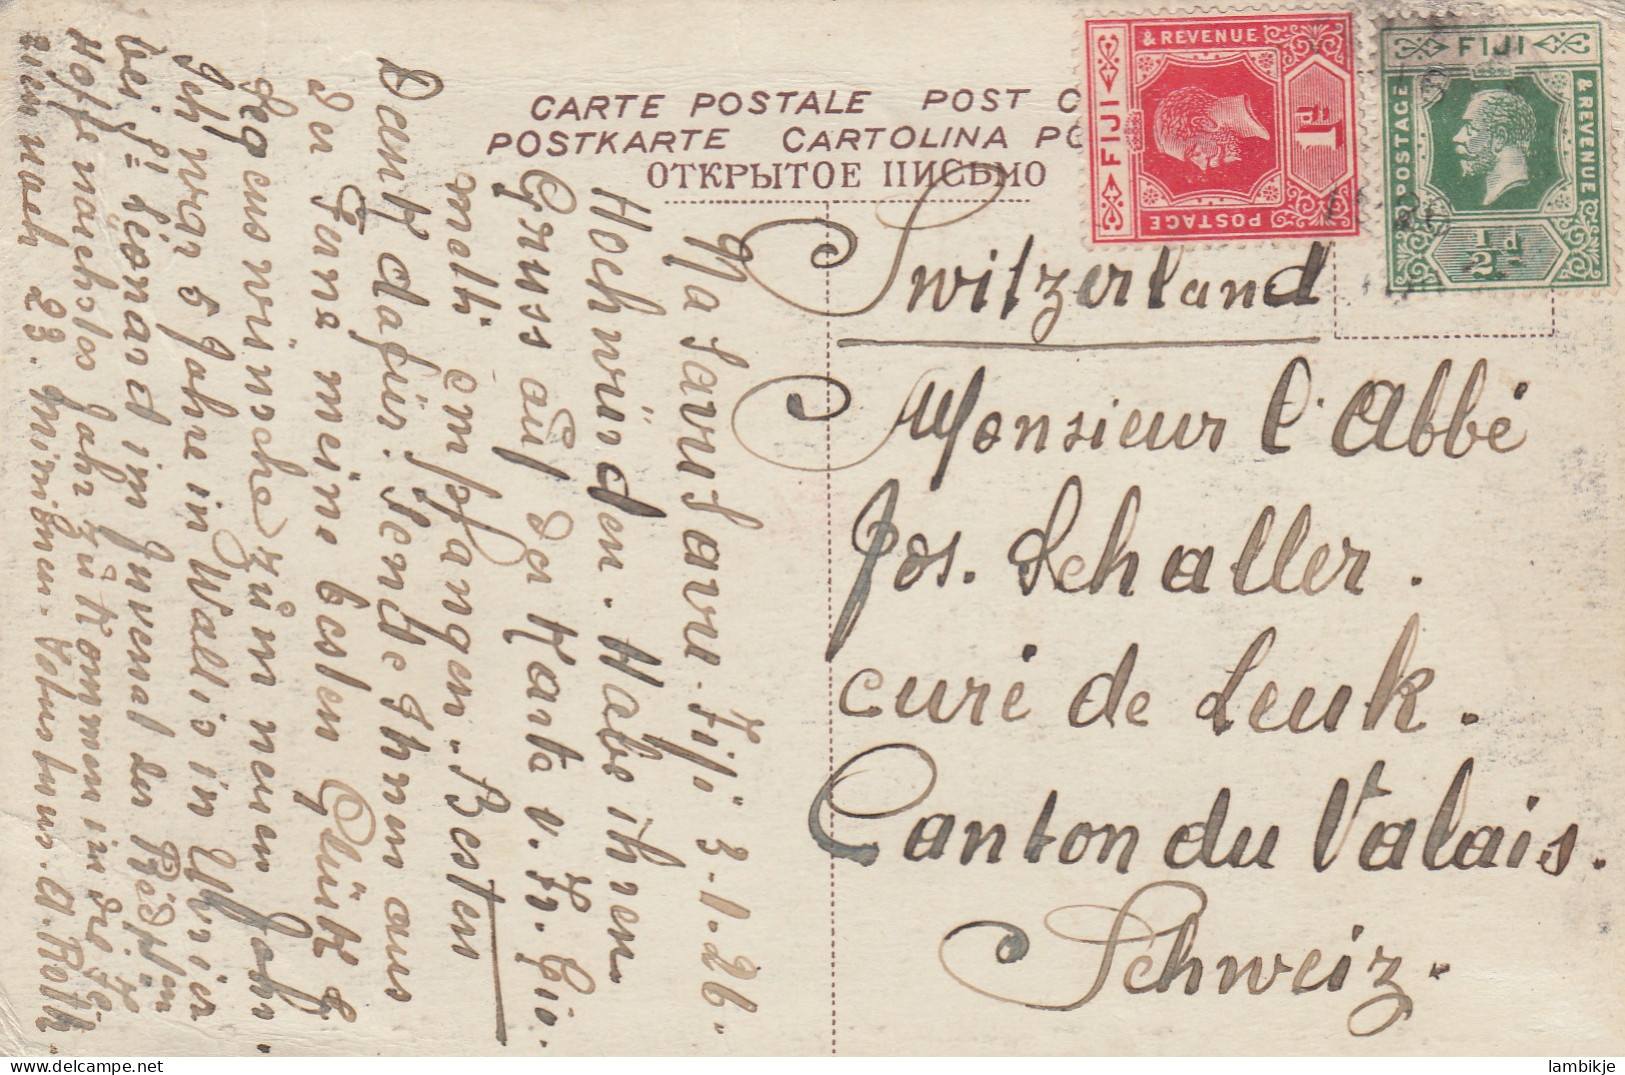 CARTE POSTALE POST C
POSTKARTE CARTOLINA PO
ОТКРЫТОЕ ПИСЬМО
FIJI
POSTAGE
& REVENUE
1d
FIJI
POSTAGE
& REVENUE
½d
Switzerland
Monsieur l'Abbé
Jos. Schaller.
curé de Leuk.
Canton du Valais.
Schweiz.
Fiji 3-1.26.
Hochwürden. Habe ihnen
Gruss auf Karte v. H.
empfangen. Besten
Dank dafür. Sende Ihnen aus
meine besten Glück &
Segenswünsche zum neuen Jahr.
Ich war 5 Jahre in Wallis in
bei Leonard im Juvenat der
Hoffe nächstes Jahr zu kommen in die
nach 23. A. Roth.
lambikje